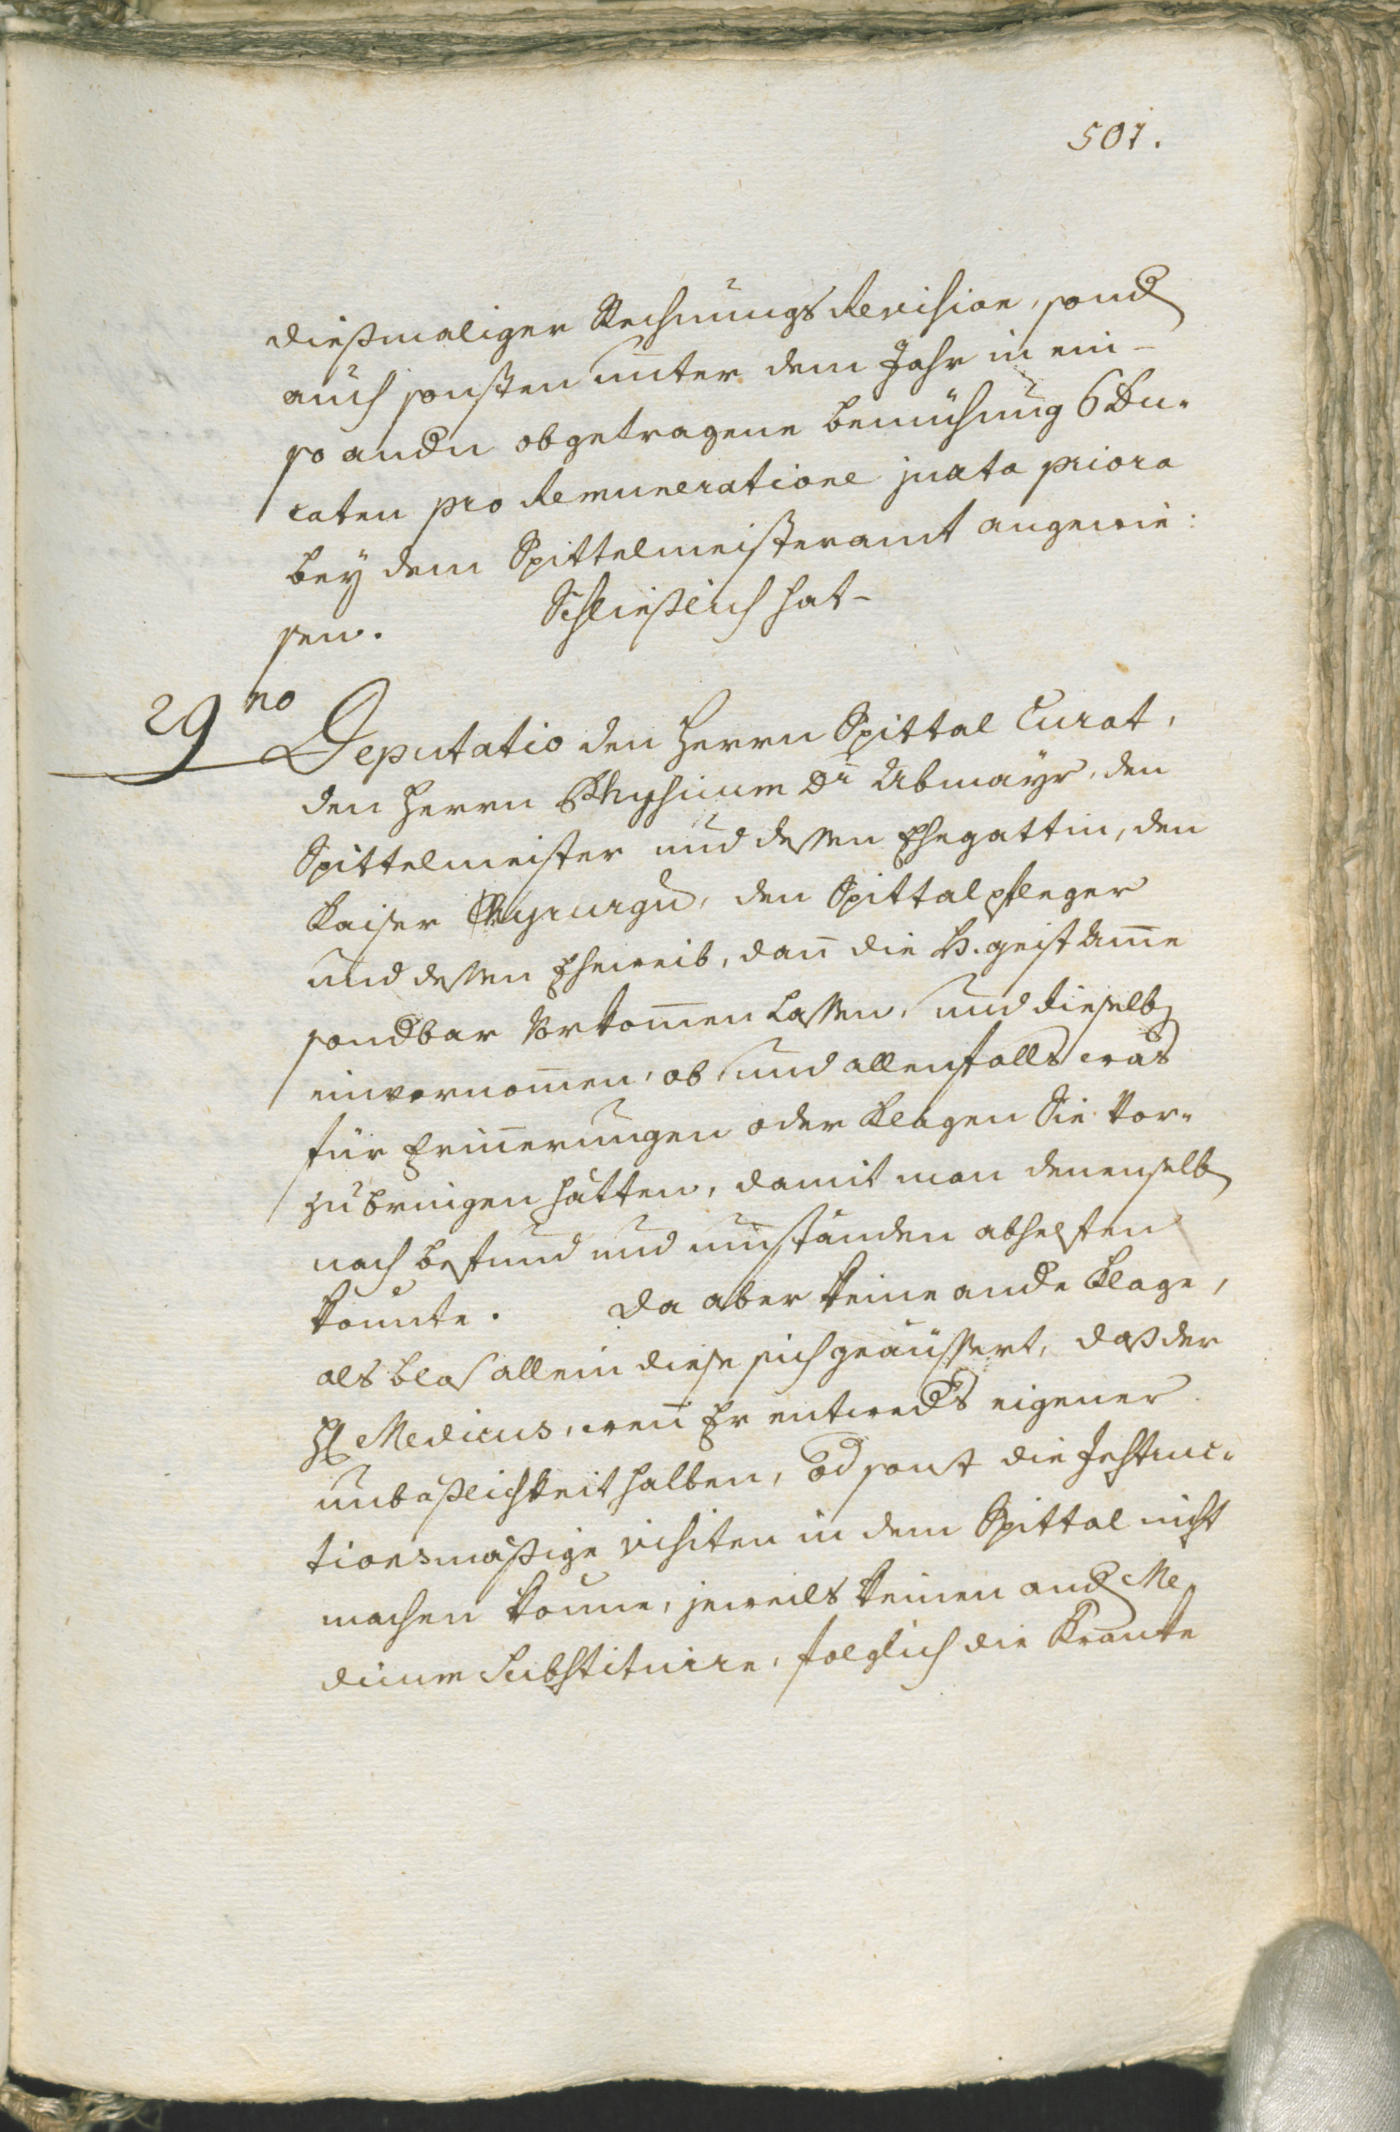 501.
dießmaliger Rechnungs Revision, sond
auch sonsten unter dem Jahr in ein-
so andn obgetragene bemühung 6 Du-
caten pro Remuneratione juxta priora
bey dem Spittelmeisteramt angewie:
sen. Schließlich hat-
29no Deputatio den Herrn Spittal Curat,
den Herrn Physicum Dr Abmayr, den
Spittelmeister und dessen Ehegattin, den
Kaiser Chyrurgu, den Spittalpfleger
und dessen Eheweib, dañ die H. geist Ame
sondbar Vorkomen Lassen, und dieselb
einvernomen, ob, und allenfalls was
für Erinerungen oder Klagen Sie Vor-
zubringen hätten, damit man denenselb
nach befund und umständen abhelfen
könnte. Da aber keine ande Klage,
als blos allein diese sich geäussert, daß der
H Medicus, weñ Er entweds eigener
unbäßlichkeit halben, od sonst die Instruc-
tionsmäßige visiten in dem Spittal nicht
machen könne, jeweils keinen and Me
dicum Substituire, folglich die Kranke